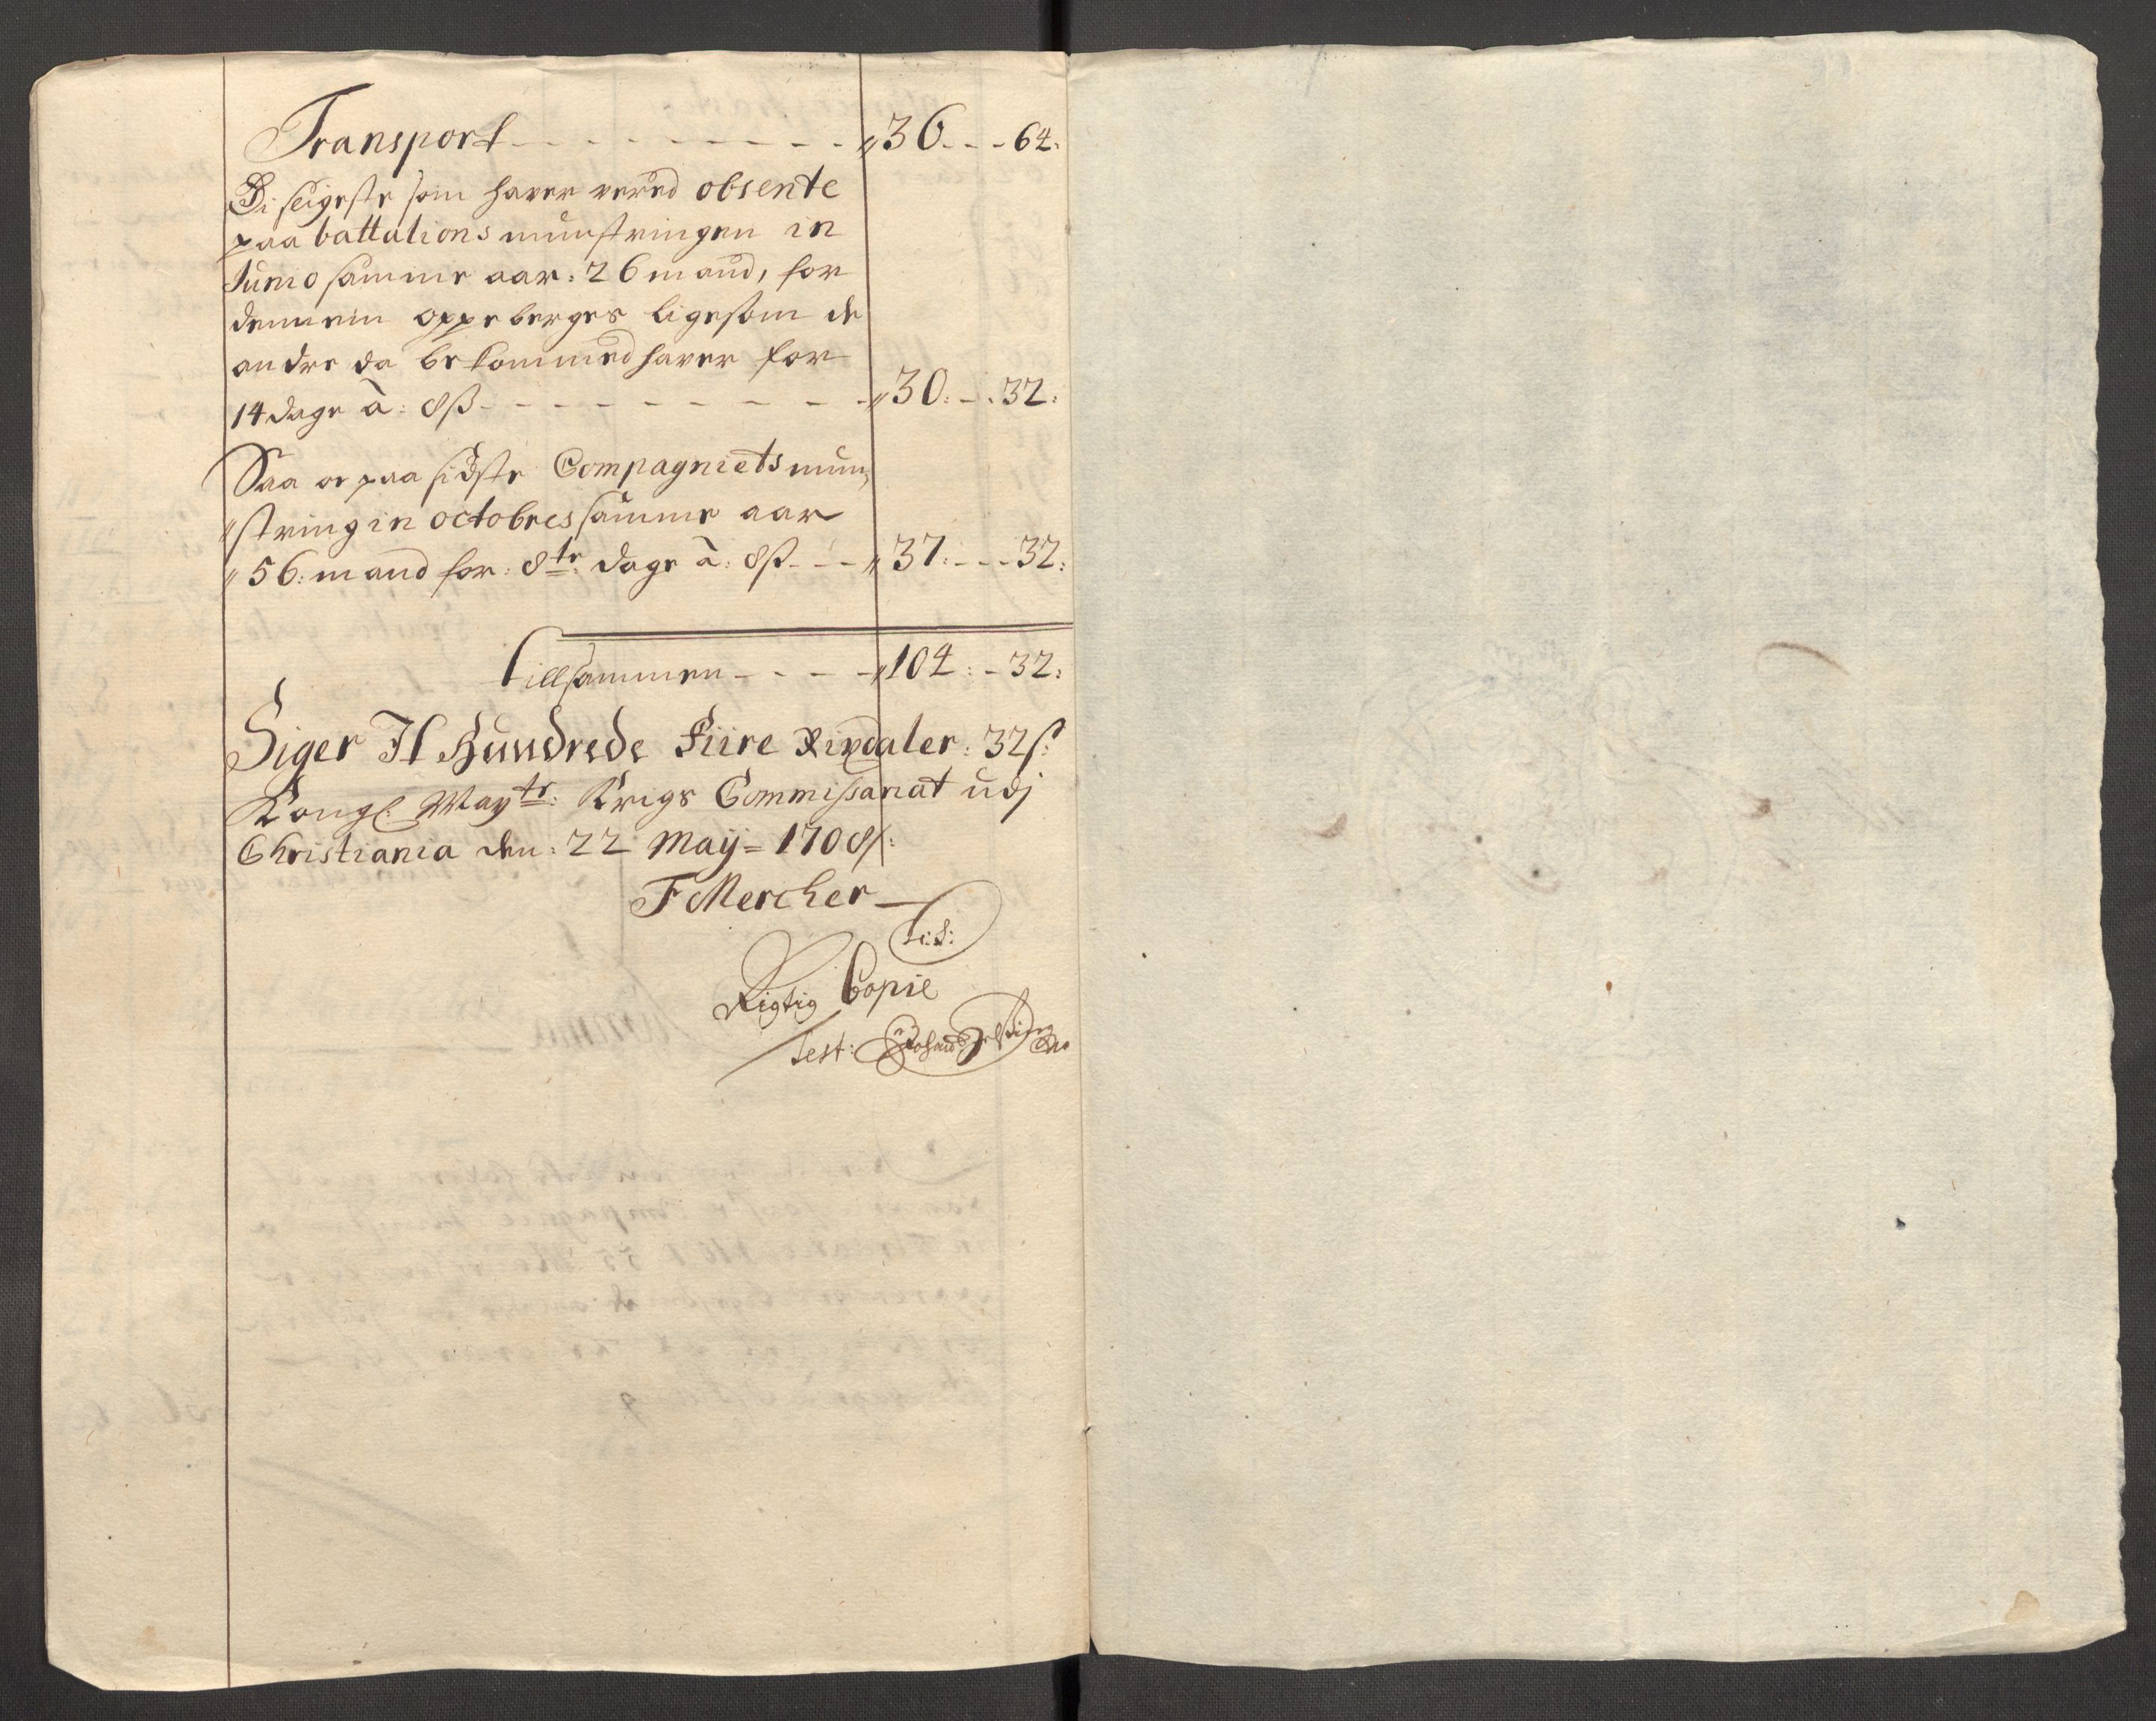 Transport - - - - - - - - - 36 - - 64:
Di seigeste som haver vered absente
paa battalions munstringen in
Junio samme aar: 26 mand, for
dennem oppeberges ligesom de
andre da bekommed haver for
14 dage à: 8ß - - - - - - - - 30: - . 32:
Saa oc paa sidste Compagniets mun,
string in octobres samme aar
56: mand for: 8te: dage à: 8ß - - - 37: - - - 32:
Tillsammen - - - - 104: - 32:
Siger Et Hundrede Fiire Rixdaler: 32ß:
Kongl: Mayts: Krigs Commissariat udj
Christiania den: 22 Maij = 1708/:
F Mercher
L:S:
Rigtig Copie
Test: